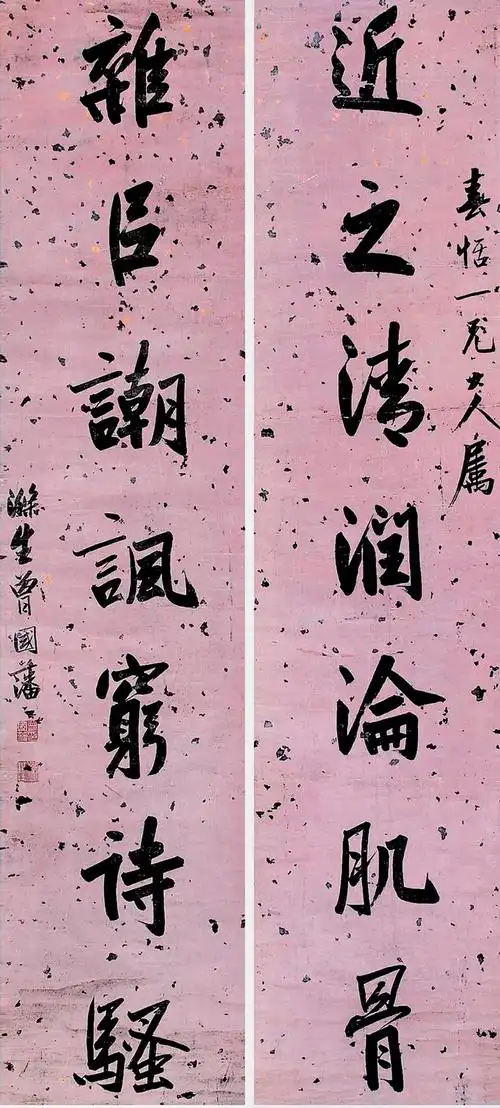 春恬一兄大人属
近之清润淪肌骨
雜㠯謿諷窮诗騷
滌生曾國藩